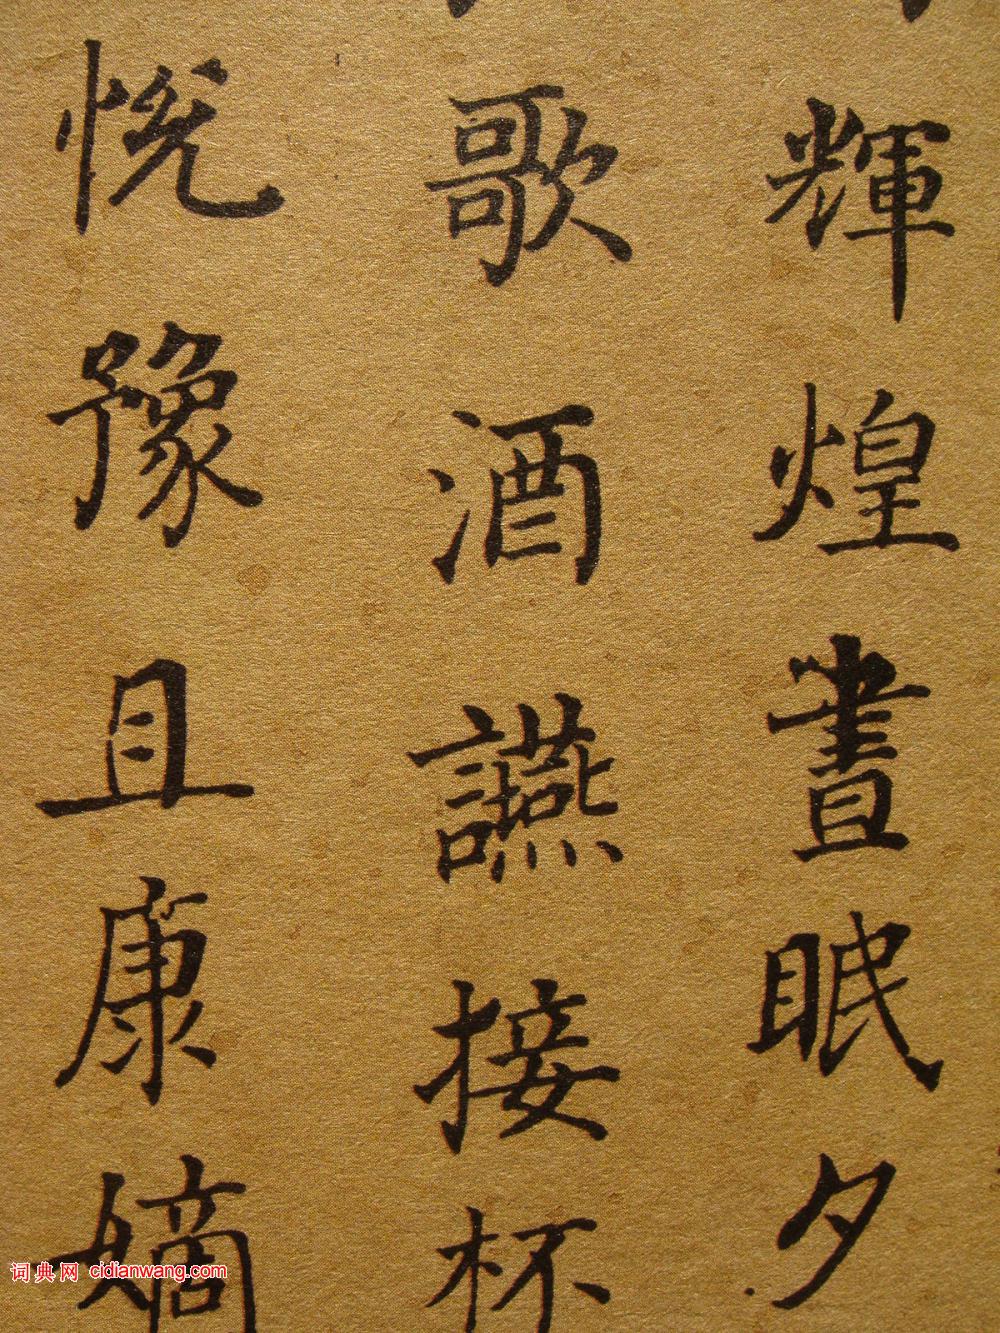 輝煌晝眠夕
歌酒讌接杯
悅豫且康嫡
词典网 cidianwang.com